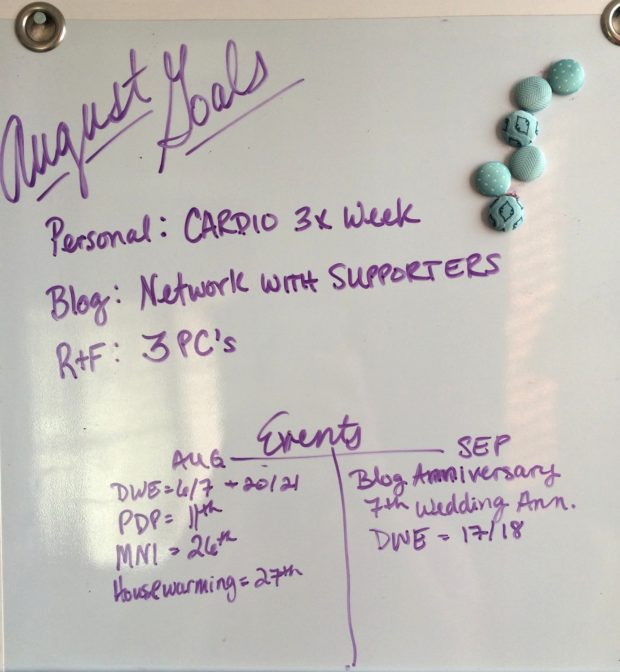 August Goals
Personal: CARDIO 3x Week
Blog: Network WITH SUPPORTERS
R+F: 3 PC's
Events
AUG
DWE=6/7 + 20/21
PDP= 11th
MNI = 26th
Housewarming= 27th
SEP
Blog Anniversary
7th Wedding Ann.
DWE = 17/18